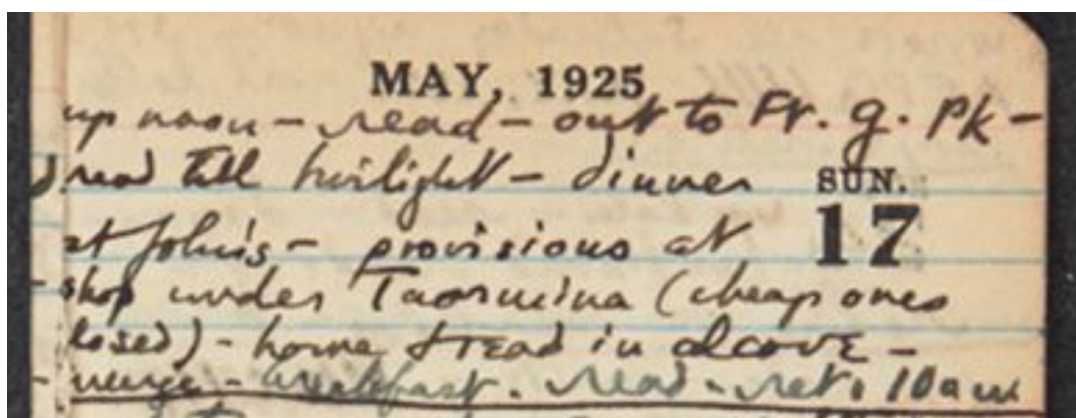 MAY, 1925
up noon – read – out to Fr. g. Pk –
read till twilight – dinner SUN.
at John's – provisions at 17
shop under Taormina (cheap ones
losed) – home & read in alcove –
– breakfast. read – ret. 10 am